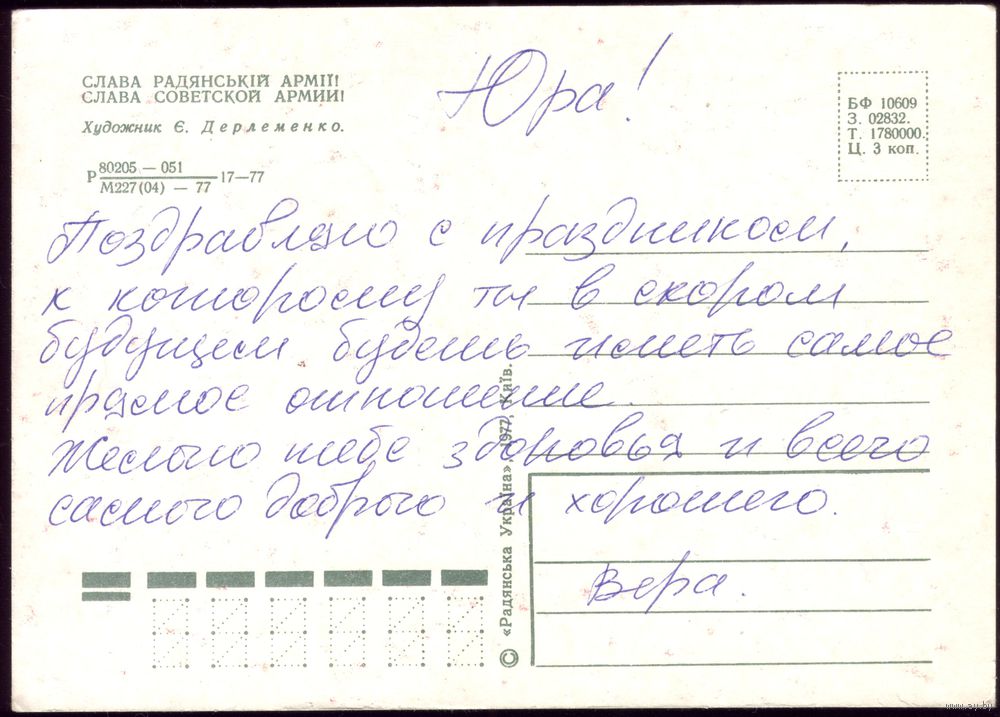 СЛАВА РАДЯНСЬКІЙ АРМІЇ!
СЛАВА СОВЕТСКОЙ АРМИИ!
Художник Є. Дерлеменко.
Р 80205 — 051
М227(04) — 77
17—77
БФ 10609
З. 02832.
Т. 1780000.
Ц. 3 коп.
Юра!
Поздравляю с праздником,
к которому ты в скором
будущем будешь иметь самое
прямое отношение.
Желаю тебе здоровья и всего
самого доброго и хорошего.
Вера.
© «Радянська Україна» 1977, Київ.
www.ay.by